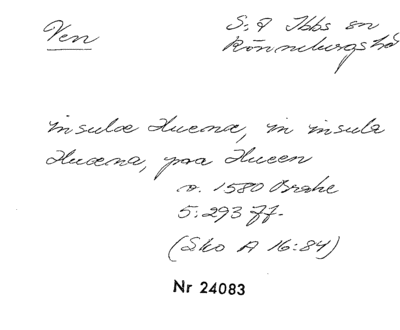 Ven
S:t Ibbs sn
Rönnebergs hd
insulæ Huenæ, in insula
Huæna, paa Hueen
o. 1580 Brahe
5:293 ff.
(Sko A 16:84)
Nr 24083